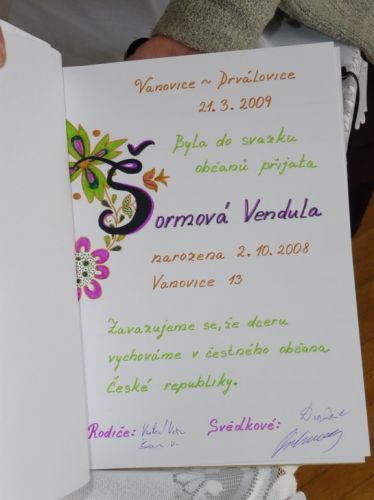 Vanovice ~ Drválovice
21.3.2009
Byla do svazku
občanů přijata
Šormová Vendula
narozena 2.10.2008
Vanovice 13
Zavazujeme se, že dceru
vychováme v čestného občana
České republiky.
Rodiče: Svědkové: